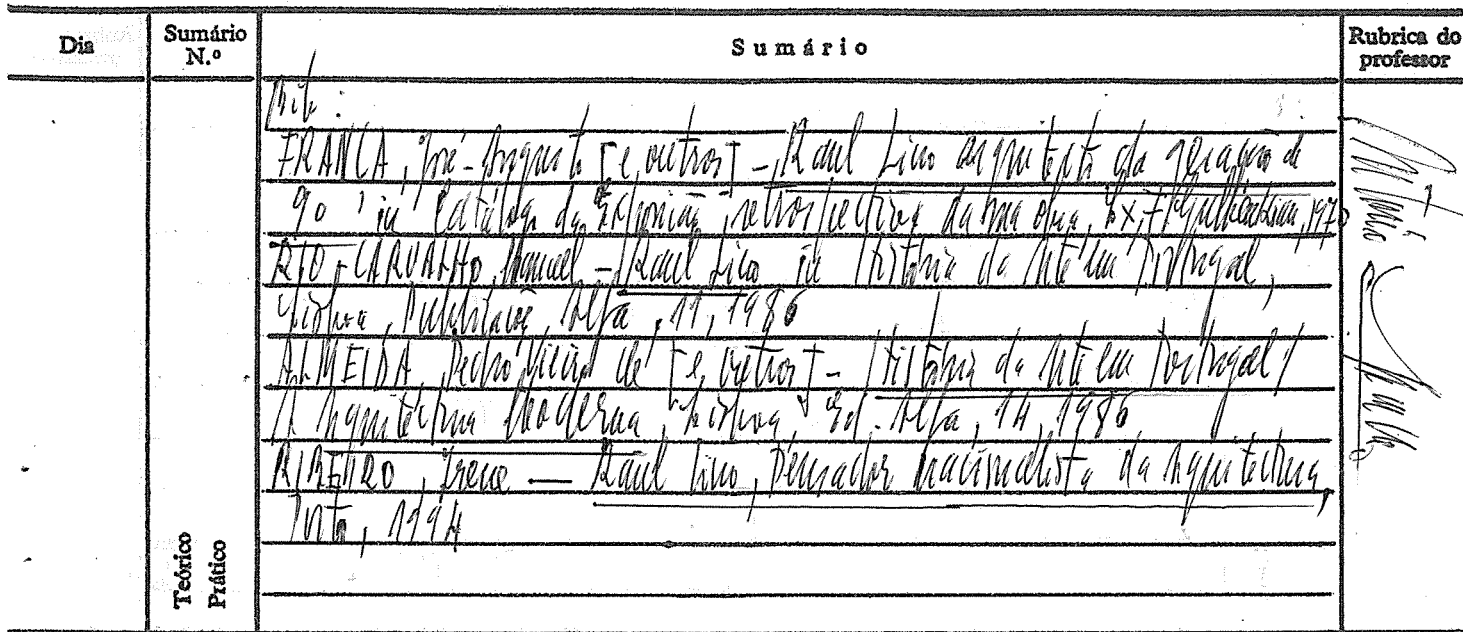 Dia
Sumário N.º
Sumário
Rubrica do professor
Bib:
FRANÇA, José-Augusto [e outros] - Raul Lino arquitecto da geração de
90, in Catálogo da Exposição retrospectiva da sua obra, Lx, F. Gulbenkian, 1970
RIO-CARVALHO, Manuel - Raul Lino in História da Arte em Portugal,
Lisboa, Publicações Alfa, 11, 1986
ALMEIDA, Pedro Vieira de [e outros] - História da Arte em Portugal /
A Arquitectura Moderna, Lisboa, Ed. Alfa, 14, 1986
RIBEIRO, Irene — Raul Lino, Pensador nacionalista da Arquitectura,
Porto, 1994
Teórico
Prático